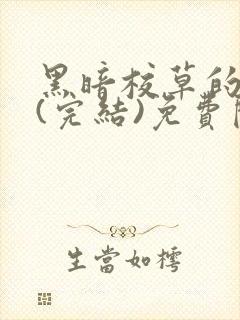 黑暗校草的
(完結)免費
生當如樗